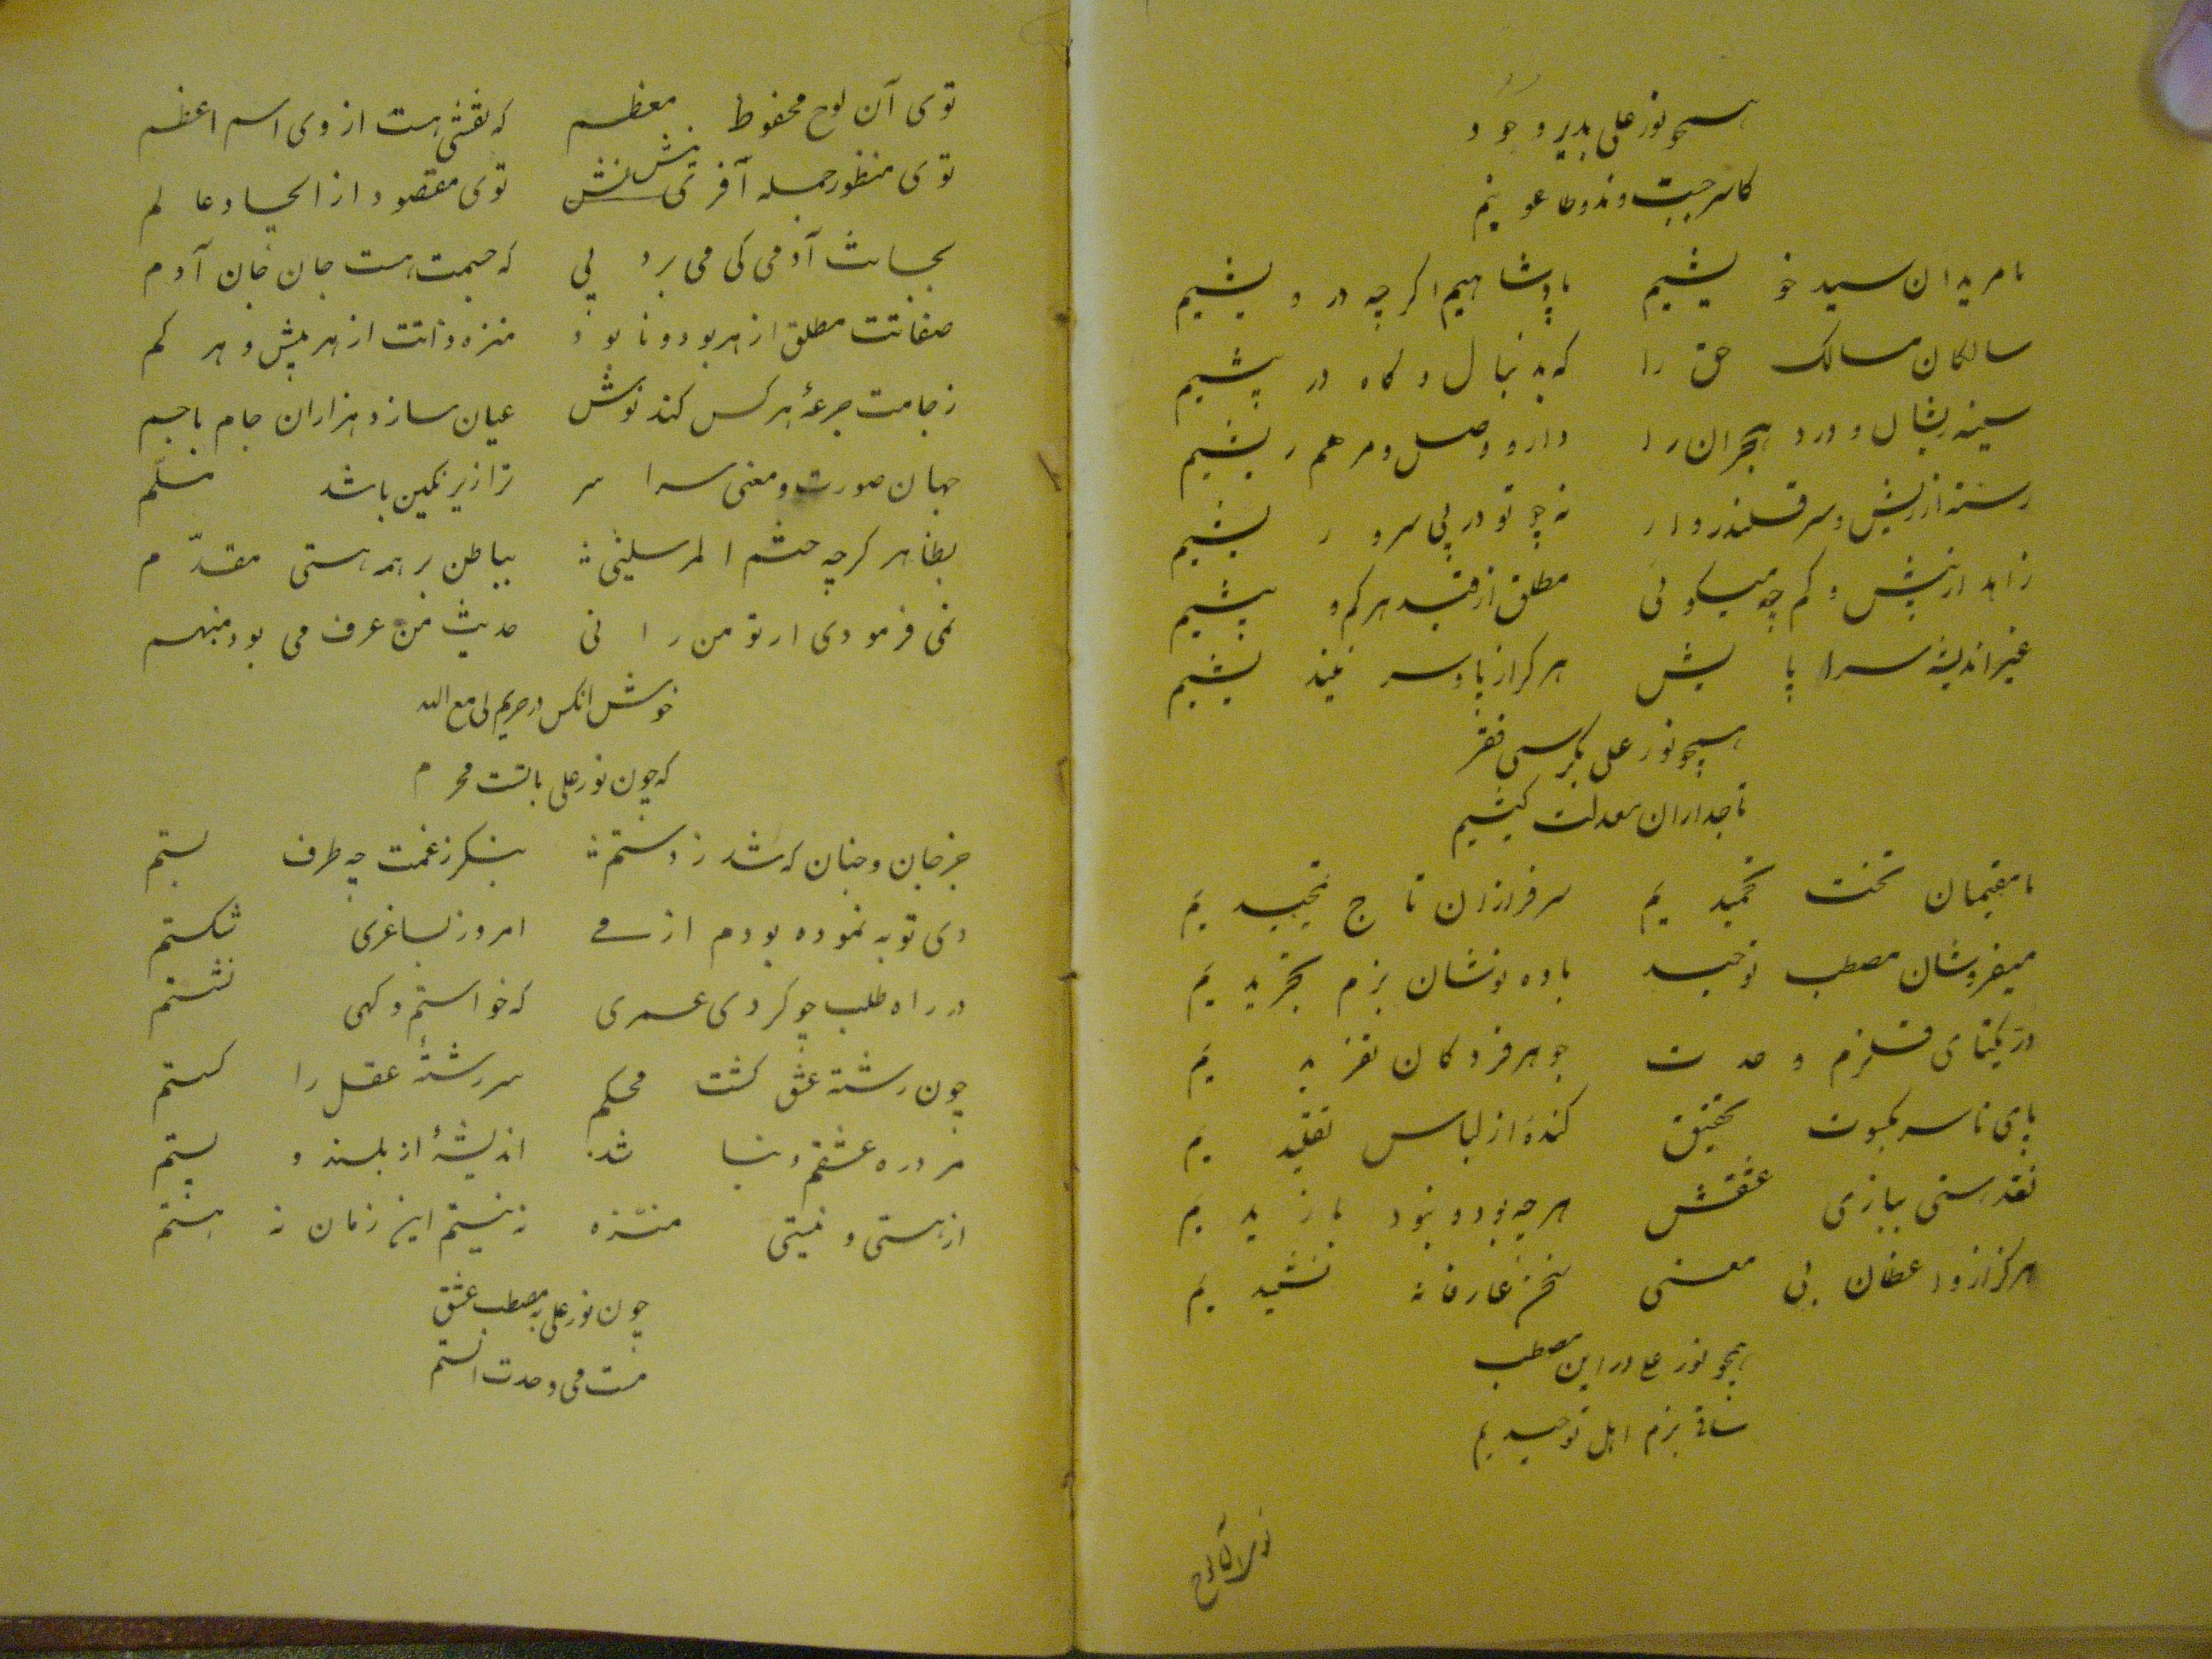 همچو نور علی بدیر وجود
کاسر جبت و ند و طاغوتیم
ما مریدان سید خویشیم پادشاهیم اگرچه درویشیم
سالکان مسالک حق را که بدنبال و گاه در پیشیم
سینه ریشان و درد هجران را داروی وصل و مرهم ریشیم
رسته از ریش و سر قلندروار نه چو تو در پی سر و ریشیم
زاهد از بیش و کم چه میگوئی مطلق از قید هر کم و بیشیم
غیر اندیشه سراپایش هرگز از پا و سر نیندیشیم
همچو نور علی بکرسی فقر
تاجداران معدلت کیشیم
ما مقیمان تخت تجمیدیم سرفرازان تاج تمجیدیم
میفروشان مصطب توحید باده نوشان بزم تجریدیم
در یکتای قلزم وحدت جوهر فرد کان تفریدیم
پای تا سر بکسوت تحقیق کنده از لباس تقلیدیم
نقد هستی ببازی عشقش هرچه بود و نبود بازیدیم
هرگز از واعظان بی معنی سخن عارفانه نشنیدیم
همچو نور علی در این مصطب
ساقی بزم اهل توحیدیم
توی آن لوح محفوظ معظم که نقشی هست از وی اسم اعظم
توی منظور جمله آفرینش توی مقصود از ایجاد عالم
بجسات آدمی کی می برد پی که جسمت هست جان جان آدم
صفاتت مطلق از هر بود و نابود منزه ذاتت از هر بیش و هر کم
ز جامت جرعهٔ هر کس کند نوش عیان سازد هزاران جام با جم
جهان صورت و معنی سراسر ترا زیر نگین باشد مسلم
بظاهر گرچه ختم المرسلینی بباطن بر همه هستی مقدّم
نمی فرمودی ار تو من رانی حدیث من عرف می بود مبهم
خوش انکس در حریم لی مع الله
که چون نور علی با تست محرم
جز جان و جنان که شد ز دستم بنگر ز غمت چه طرف بستم
دی توبه نموده بودم از می امروز بساغری شکستم
در راه طلب چو گردی عمری که خواستم و گهی نشستم
چون رشتهٔ عشق گشت محکم سررشتهٔ عقل را گسستم
در ره عشقم و بنا شد اندیشهٔ از بلند و پستم
از هستی و نیستی منزّه نه نیستم این زمان نه هستم
چون نور علی به مصطب عشق
مست می وحدت الستم